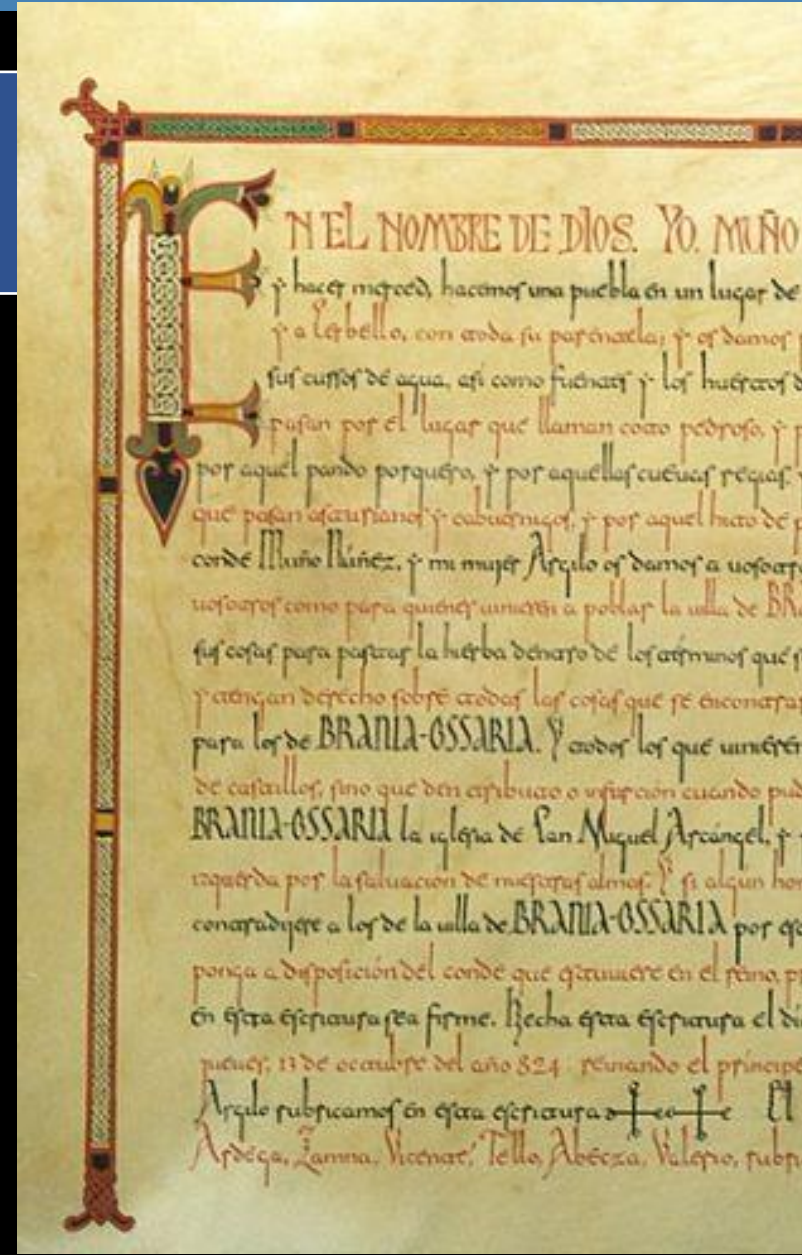 EN EL NOMBRE DE DIOS. YO. MUÑO
y hacer merced, hacemos una puebla en un lugar de
y a Lerbello, con toda su parentela; y os damos
sus cursos de agua, así como fuentes y los huertos
pasan por el lugar que llaman coto pedroso, y
por aquel pando porquero, y por aquellas cuevas regias
que pasan asturianos y cabuernigos, y por aquel hito de
conde Muño Núñez, y mi mujer Argilo os damos a vosotros
vosotros como para quienes vinieren a poblar la villa de
sus cosas para pastar la hierba dentro de los términos que
y tengan derecho sobre todas las cosas que se
para los de BRANIA-OSSARIA. Y todos los que vinieren
de castillos, sino que den tributo o infurción cuando
BRANIA-OSSARIA la iglesia de San Miguel Arcángel, y
izquierda por la salvación de nuestras almas. Y si algun
contradijere a los de la villa de BRANIA-OSSARIA por
ponga a disposición del conde que estuviere en el reino,
en esta escritura sea firme. Hecha esta escritura el
jueves, 13 de octubre del año 824 reinando el
Argilo rubricamos en esta escritura El
Ardega, Zamna, Vicente, Tello, Abecza, Valerio,